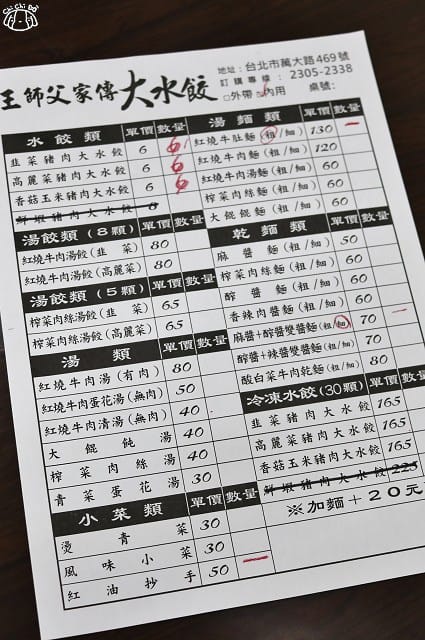 Chi Chi Bo
王師父家傳大水餃
地址：台北市萬大路469號
訂購專線：2305-2338
□外帶 □內用 桌號：
水餃類 單價 數量
韭菜豬肉大水餃 6 6
高麗菜豬肉大水餃 6 6
香菇玉米豬肉大水餃 6 6
鮮蝦豬肉大水餃 8
湯餃類(8顆) 單價 數量
紅燒牛肉湯餃(韭菜) 80
紅燒牛肉湯餃(高麗菜) 80
湯餃類(5顆) 單價 數量
榨菜肉絲湯餃(韭菜) 65
榨菜肉絲湯餃(高麗菜) 65
湯類 單價 數量
紅燒牛肉湯(有肉) 80
紅燒牛肉蛋花湯(無肉) 50
紅燒牛肉清湯(無肉) 40
大餛飩湯 40
榨菜肉絲湯 40
青菜蛋花湯 30
小菜類 單價 數量
燙青菜 30
風味小菜 30
紅油抄手 50 一
湯麵類 單價 數量
紅燒牛肚麵(粗/細) 130 一
紅燒牛肉麵(粗/細) 120
紅燒牛肉湯麵(粗/細) 60
榨菜肉絲麵(粗/細) 60
大餛飩麵(粗/細) 60
乾麵類 單價 數量
麻醬麵(粗/細) 50
榨菜肉絲麵(粗/細) 60
醡醬麵(粗/細) 60
香辣肉醬麵(粗/細) 60
麻醬+醡醬雙醬麵(粗/細) 70 一
醡醬+辣醬雙醬麵(粗/細) 70
酸白菜牛肉乾麵(粗/細) 80
冷凍水餃(30顆) 單價 數量
韭菜豬肉大水餃 165
高麗菜豬肉大水餃 165
香菇玉米豬肉大水餃 165
鮮蝦豬肉大水餃 225
※加麵+20元